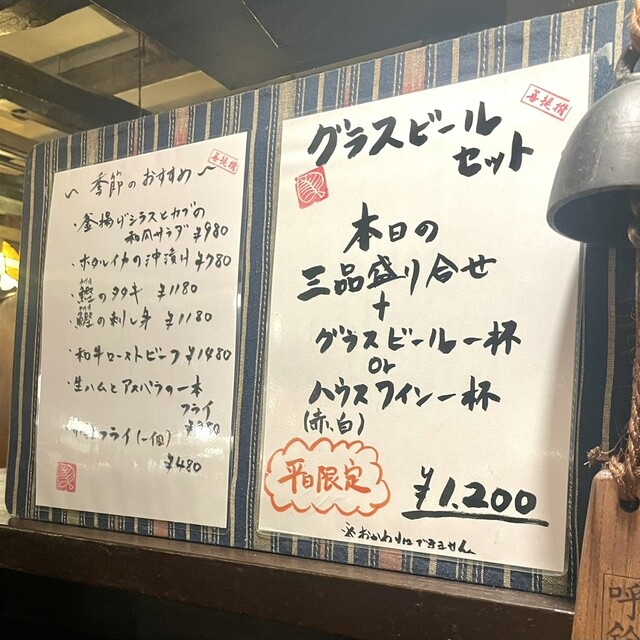 ～季節のおすすめ～
・釜揚げシラスとカブの
和風サラダ ¥980
・ホタルイカの沖漬け ¥780
・鰹のタタキ ¥1180
・鰹の刺し身 ¥1180
・和牛ローストビーフ ¥1480
・生ハムとアスパラの一本
フライ
フライ(一個)
¥480
菩提樹
グラスビール
セット
本日の
三品盛り合せ
+
グラスビール一杯
or
ハウスワイン一杯
(赤、白)
平日限定
¥1.200
※おかわりはできません
菩提樹
呼